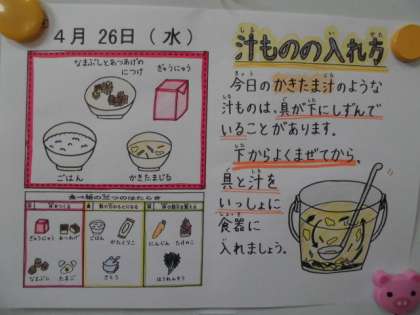 4月 26日（水）
なまぶしとあつあげの
につけ
ぎゅうにゅう
ごはん
かきたまじる
食べ物の三つのはたらき
ぎゅうにゅう
あつあげ
ごはん
かたくりこ
にんじん
たけのこ
なまぶし
たまご
さとう
ほうれんそう
汁ものの入れ方
今日のかきたま汁のような
汁ものは、具が下にしずんで
いることがあります。
下からよくまぜてから、
具と汁を
いっしょに
食器に
入れましょう。